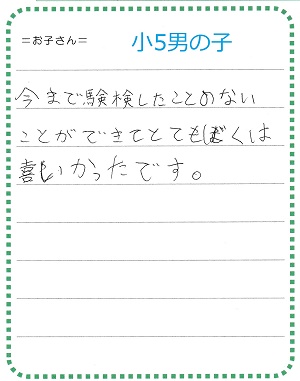 =お子さん= 小5男の子
今まで験検したことのない
ことができてとてもぼくは
喜しいかったです。